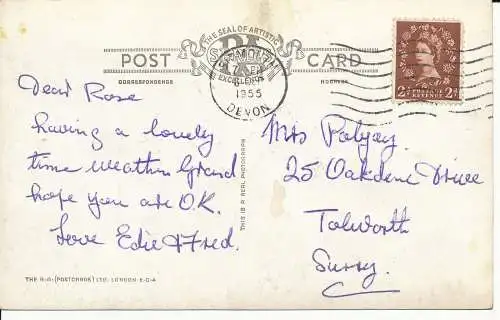 THE SEAL OF ARTISTIC
EXCELLENCE
POST CARD
CORRESPONDENCE
ADDRESS
1955
DEVON
POSTAGE REVENUE
2D 2D
Dear Rose
having a lovely
time weather Grand
hope you are O.K.
Love Edie & Fred.
THIS IS A REAL PHOTOGRAPH
Mrs
25 Oakdene Drive
Tolworth
Surry.
THE R.A. (POSTCARDS) LTD. LONDON E.C.4